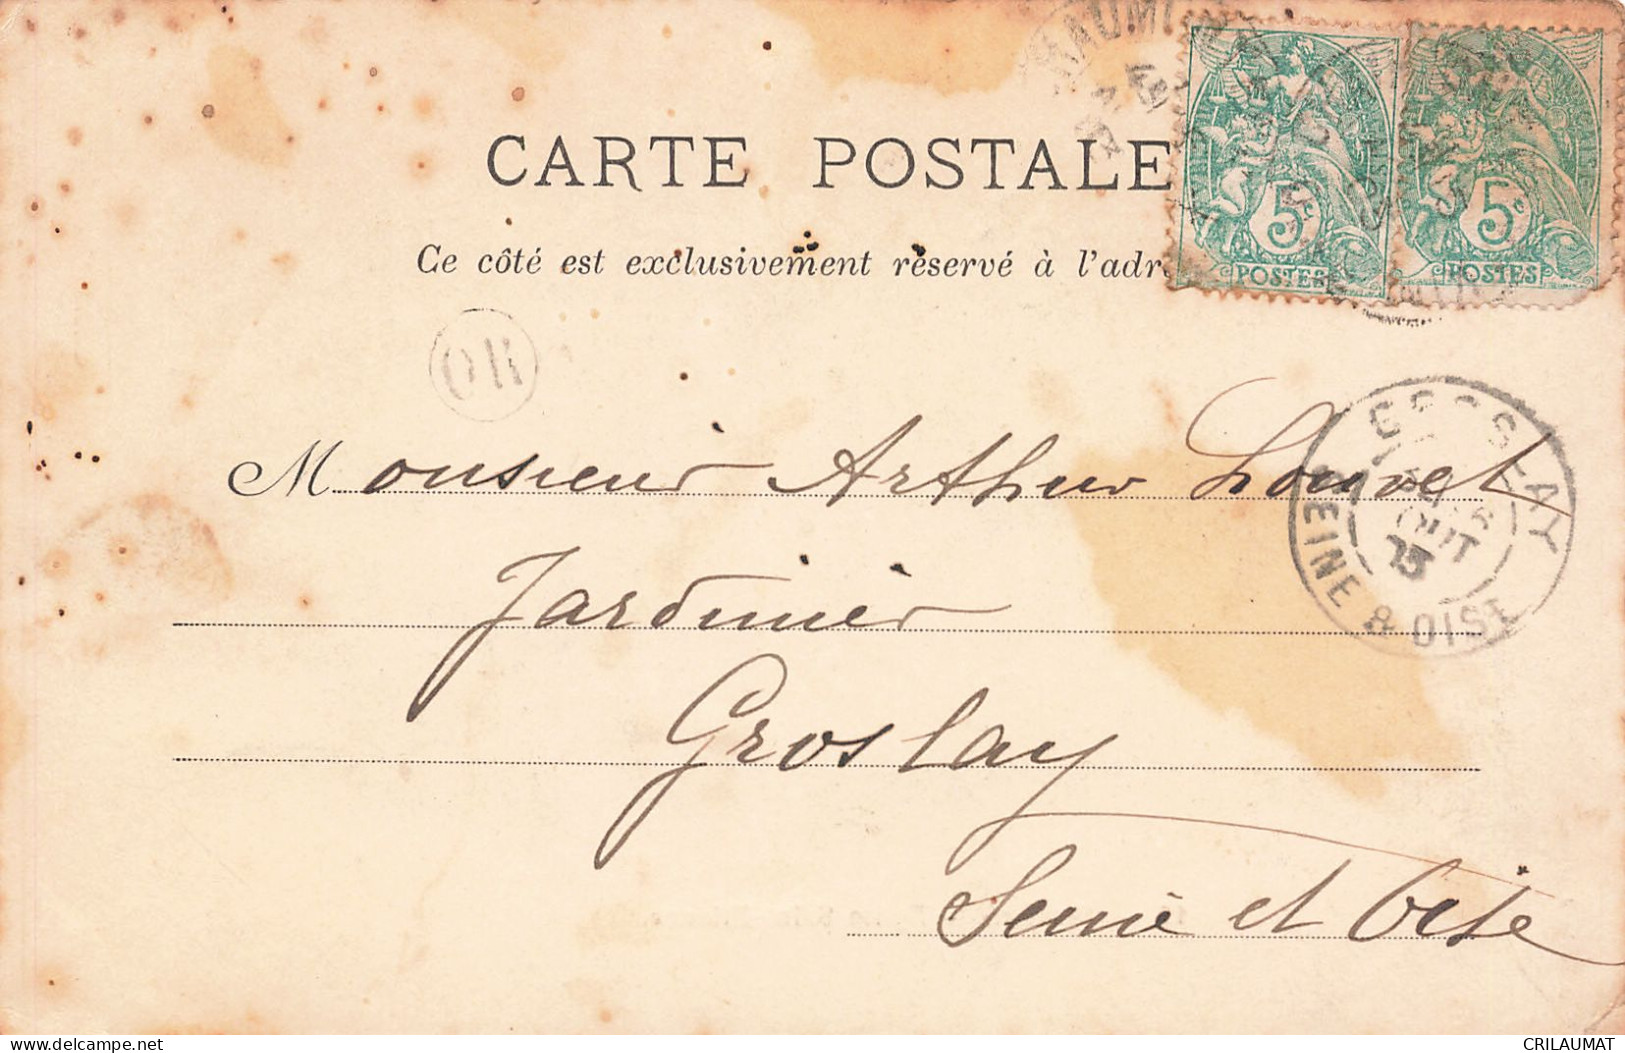 CARTE POSTALE
Ce côté est exclusivement réservé à l'adr
5c
POSTES
5c
POSTES
OR
Monsieur Arthur Louvet
GROSLAY
SEINE & OISE
Jardinier
Groslay
Seine et Oise
delcampe.net
CRILAUMAT